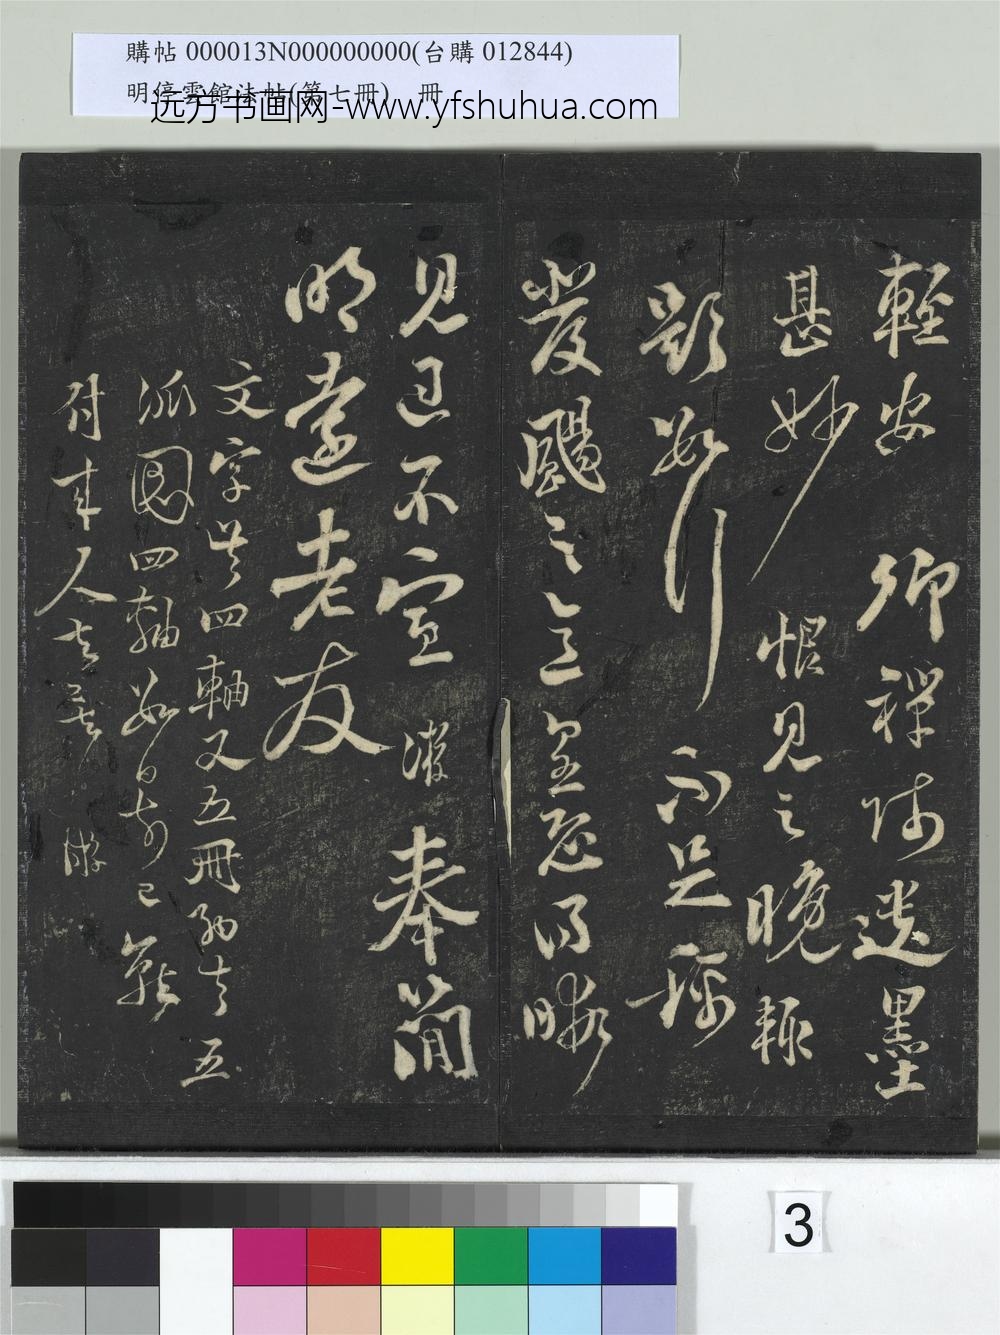 購帖 000013N000000000(台購 012844)
明停雲館法帖(第七冊) 冊
远方书画网-www.yfshuhua.com
輕安 仰禪師遺墨
甚妙 恨見之晚輒
題數行 不足
發颺之 得暇
見過不宣 漵奉簡
明遠老友
文字共四軸又五冊納去五
派圖四軸數日前已
付來人去 漵
3